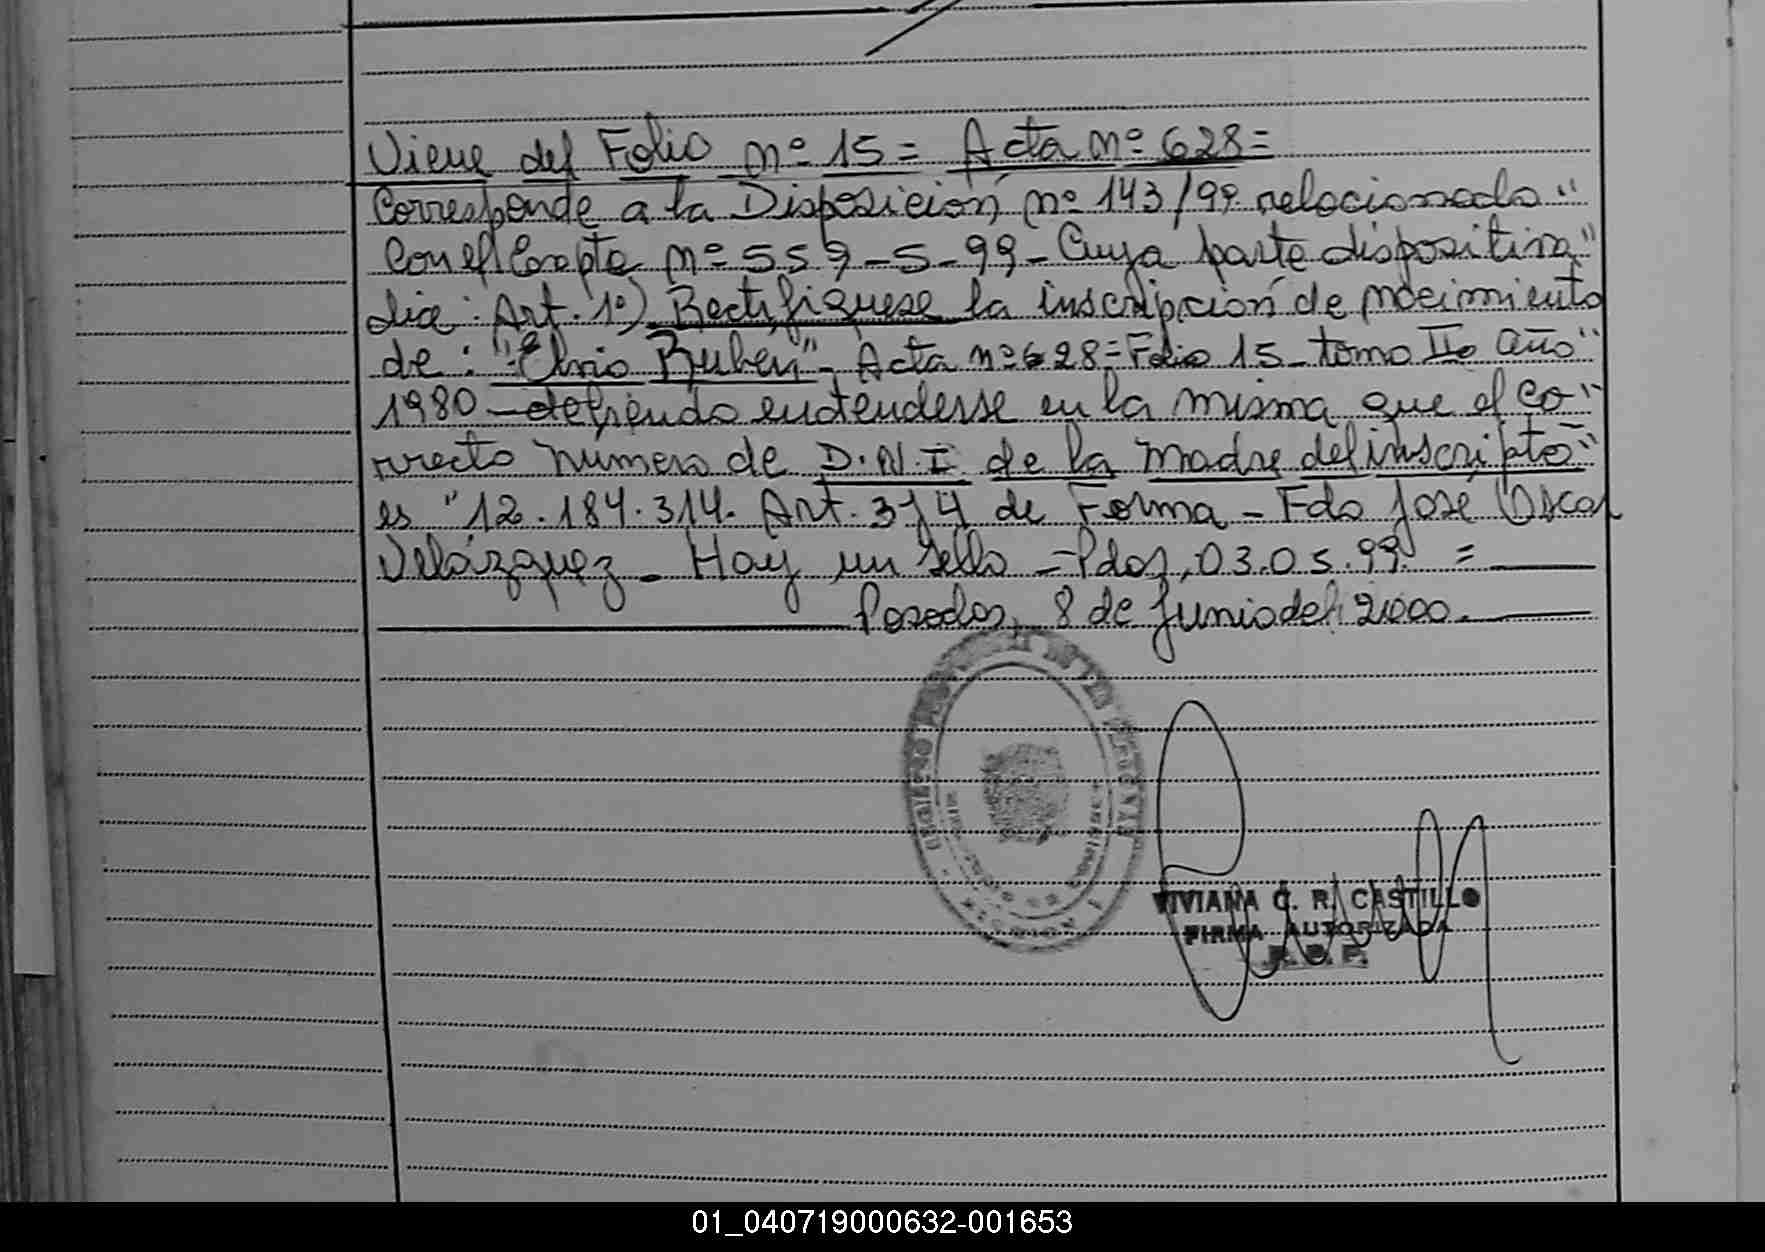 Viene del Folio nº 15 = Acta nº 628 =
Corresponde a la Disposición nº 143/99 relacionada "
Con el Expte nº 559-5-99 - Cuya parte dispositiva "
dice: Art. 1º) Rectifíquese la inscripción de nacimiento
de: "Elvio Ruben" - Acta nº 628 = Folio 15 - tomo IIº año "
1980 - debiendo entenderse en la misma que el co "
rrecto numero de D.N.I de la madre del inscripto "
es "12.184.314. Art. 3 y 4 de Forma - Fdo José Oscar
Velázquez - Hay un sello - Pdas, 03.05.99. =
Posadas, 8 de Junio del 2000.
VIVIANA C. R. CASTILLO
FIRMA AUTORIZADA
01_040719000632-001653